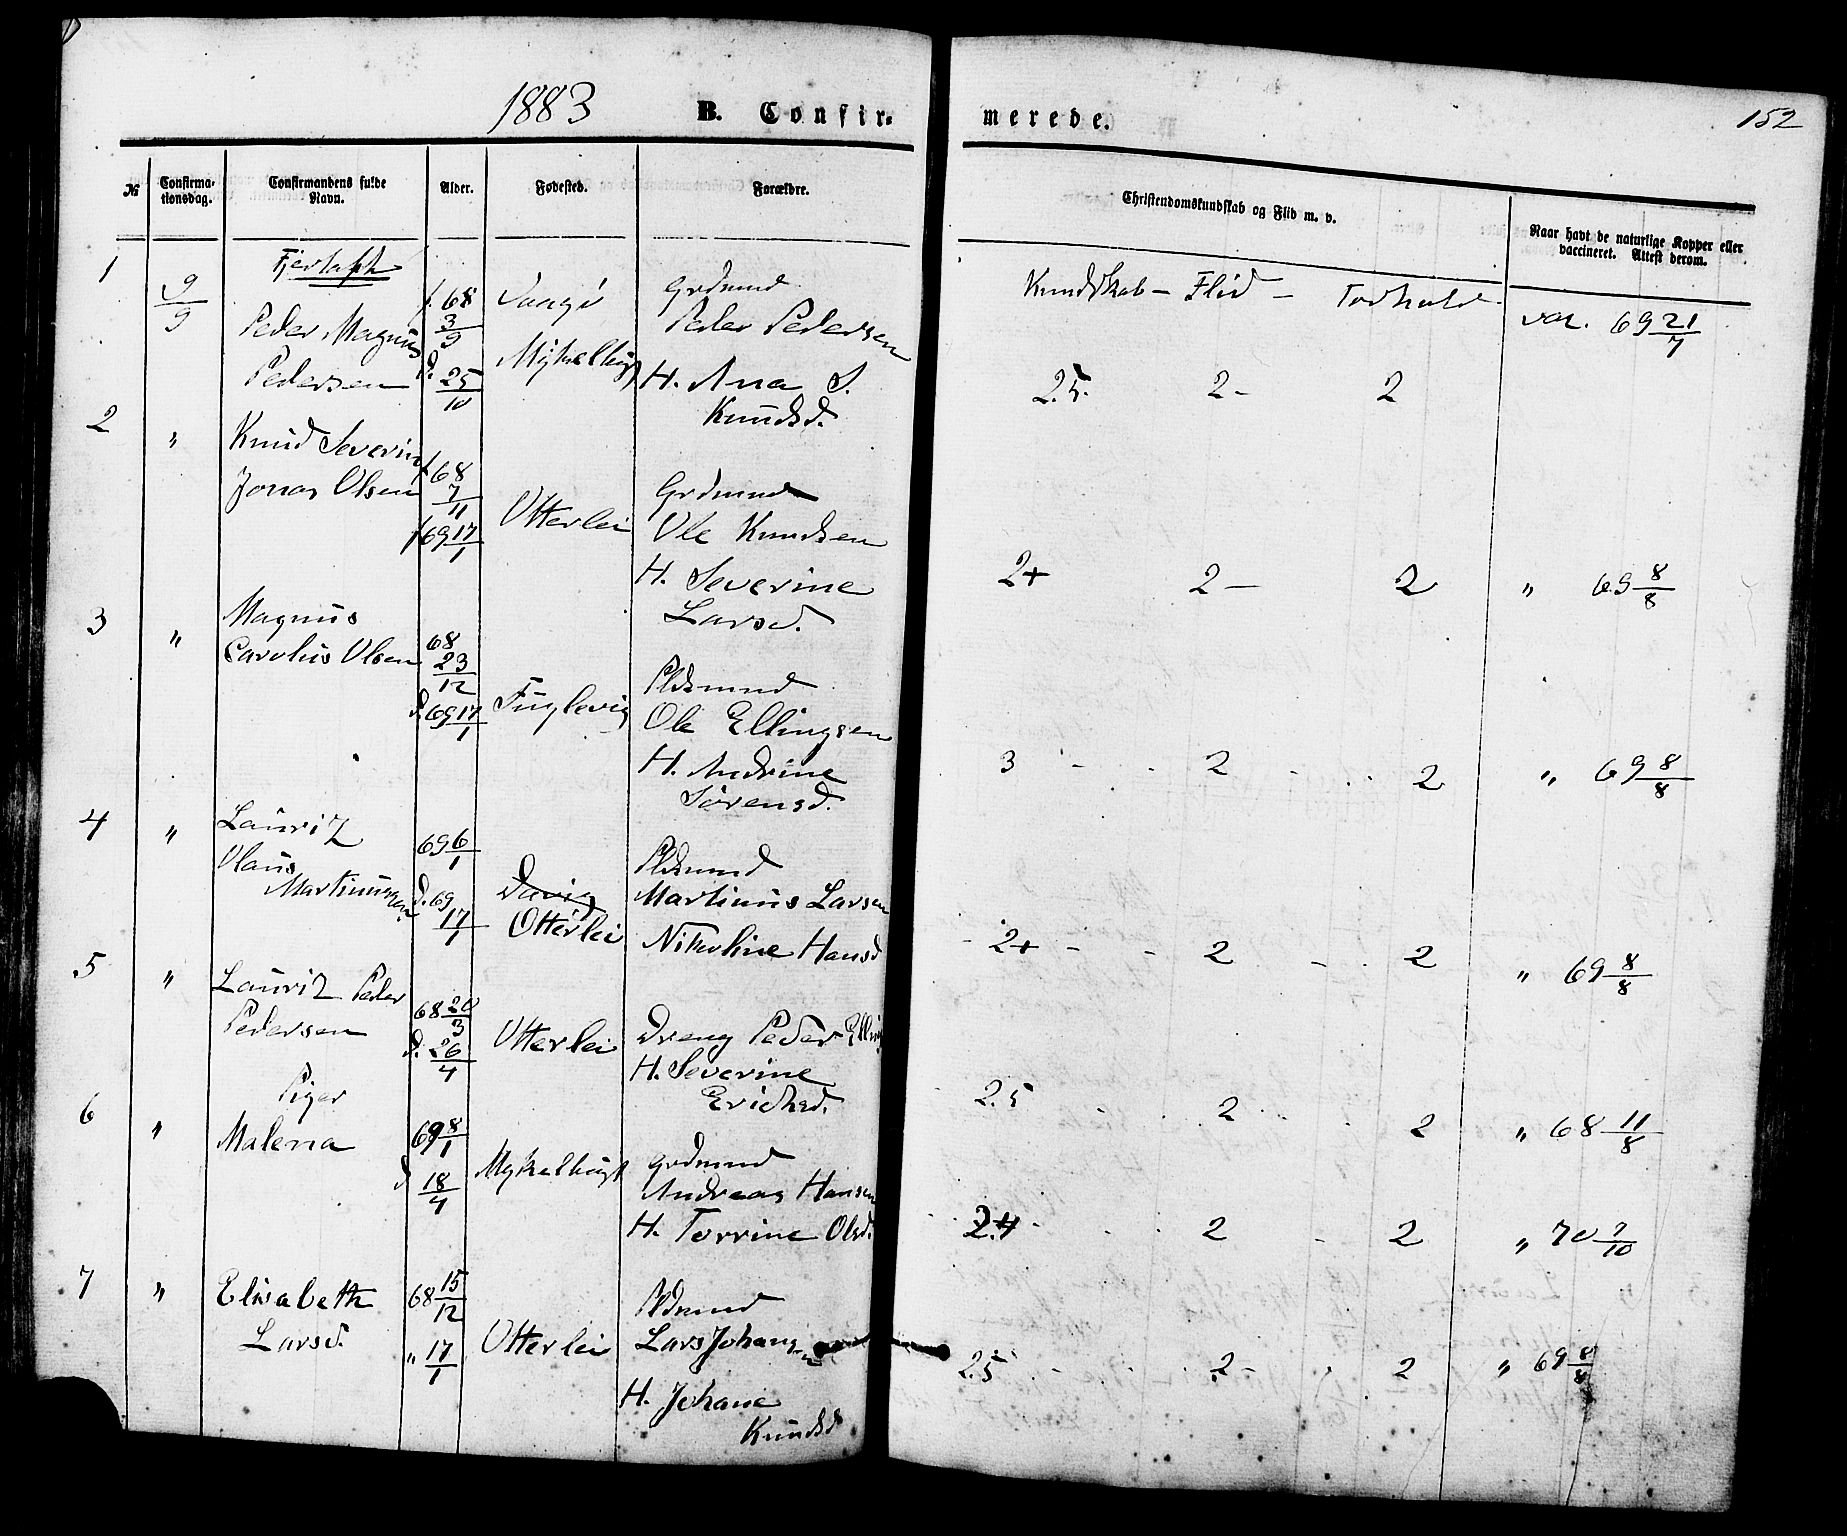 1883 B. Confirmerede. 152
№ Confirmationsdag. Confirmandens fulde Navn. Alder. Fødested. Forældre. Christendomskundskab og Flid m. v. Naar havt de naturlige Kopper eller vaccineret. Attest derom.
Kundskab – Flid – Forhold
1 9/9 Peder Magnus f. 68 3/9 Grdmnd vac. 69 21/7
Pedersen d. 25/10 Myhelbugt Peder Pedersen 2.5. 2 – 2
H. Ana S.
Knudsd.
2 " Knud Severin f. 68 7/11 Grdmnd
Jonas Olsen 69 17/1 Otterlei Ole Knudsen
H. Severine 2+ 2 – 2 " 69 8/8
Larsd.
3 " Magnus 68 23/12
Carolus Olsen d. 69 17/1 Fuglevig Pldsmnd
Ole Ellingsen
H. Andrine 3 - 2 - 2 " 69 8/8
Sørensd.
4 " Lauritz 69 6/1 Pldsmnd
Olaus d. 69 17/1 Martinus Larsen
Martinussen Otterlei Nikoline Hansd 2+ - 2 - 2 " 69 8/8
5 " Lauritz Peder 68 20/3
Pedersen d. 26/4 Otterlei Dreng Peder
H. Severine
Erichsd. 2.5 2 2 " 68 11/8
Piger
6 " Malena 69 8/1 Grdmnd
d 18/4 Myhelbugt Andreas Hansen
H. Torrine Olsd. 2 2 " 70 7/10
7 " Elisabeth 68 15/12 Pldsmnd
Larsd. " 17/1 Otterlei Lars Johansen
2.5 - 2 - 2 " 69 8/8
H. Johane
Knudsd